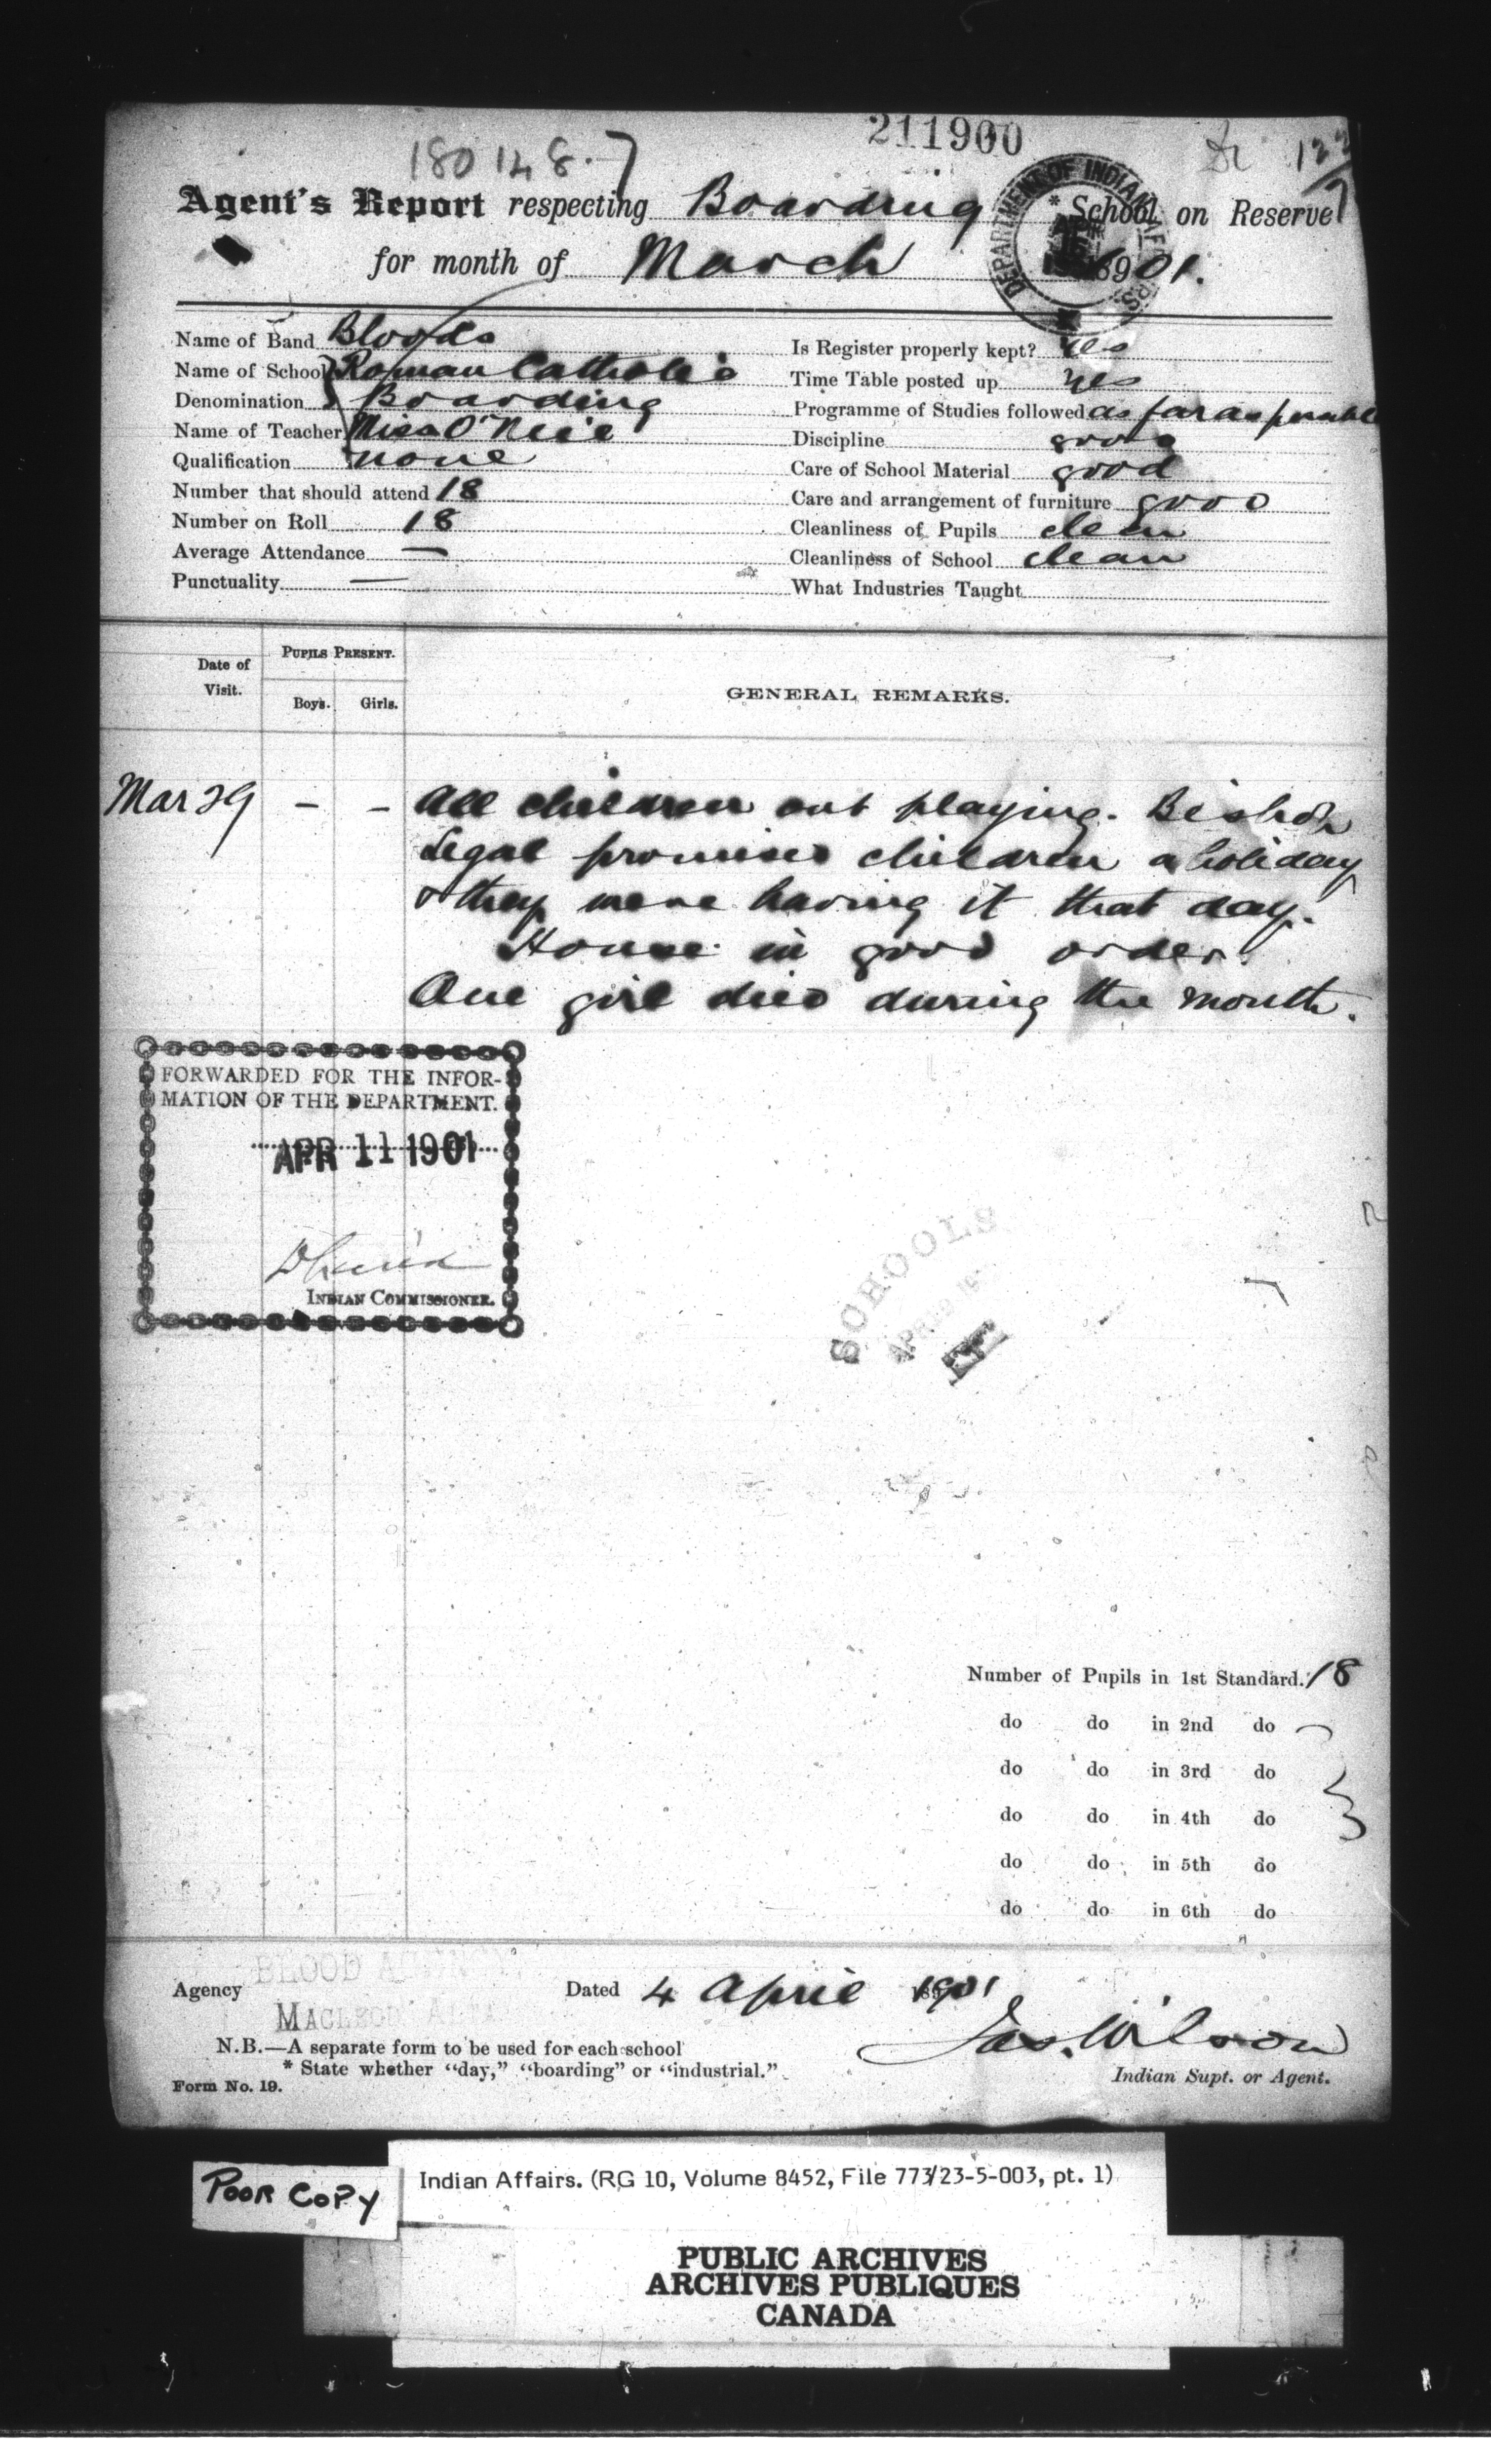 211900
180148-7
Agent's Report respecting Boarding * School on Reserve
for month of March 1901.
DEPARTMENT OF INDIAN AFFAIRS.
Name of Band Bloods
Name of School } Roman Catholic
Denomination } Boarding
Name of Teacher Miss O'Neil
Qualification none
Number that should attend 18
Number on Roll 18
Average Attendance —
Punctuality —
Is Register properly kept? Yes
Time Table posted up yes
Programme of Studies followed as far as possible
Discipline good
Care of School Material good
Care and arrangement of furniture good
Cleanliness of Pupils clean
Cleanliness of School clean
What Industries Taught
Date of Visit.
PUPILS PRESENT.
Boys. Girls.
GENERAL REMARKS.
Mar 29 - - All children out playing. Bishop
Legal promised children a holiday
& they were having it that day.
House in good order.
One girl died during the month.
FORWARDED FOR THE INFOR-
MATION OF THE DEPARTMENT.
APR 11 1901
INDIAN COMMISSIONER.
SCHOOLS
Number of Pupils in 1st Standard. 18
do do in 2nd do
do do in 3rd do
do do in 4th do
do do in 5th do
do do in 6th do
Agency BLOOD AGENCY
MACLEOD ALTA
Dated 4 April 1901
Jas. Wilson
Indian Supt. or Agent.
N.B.—A separate form to be used for each school
* State whether "day," "boarding" or "industrial."
Form No. 19.
POOR COPY
Indian Affairs. (RG 10, Volume 8452, File 773/23-5-003, pt. 1)
PUBLIC ARCHIVES
ARCHIVES PUBLIQUES
CANADA